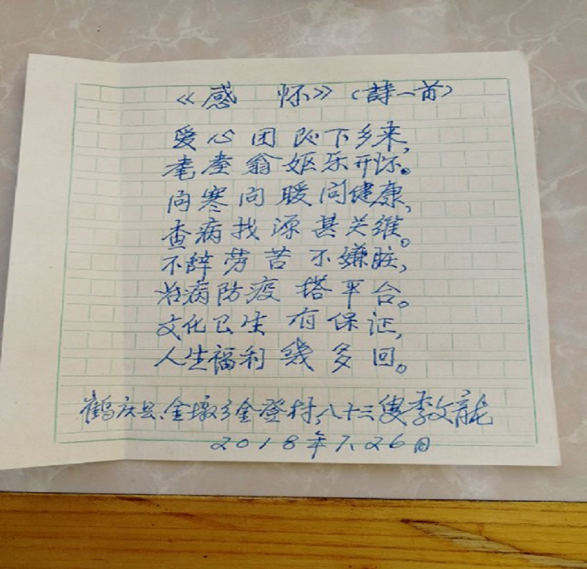 《感 怀》（詩一首）
爱心团队下乡来，
耄耋翁妪乐开怀。
问寒问暖问健康，
查病找源甚关维。
不辞劳苦不嫌脏，
治病防疫搭平台。
文化卫生有保证，
人生福利幾多回。
鹤庆县、金墩乡金登村，八十三叟李文龍
2018年7.26日